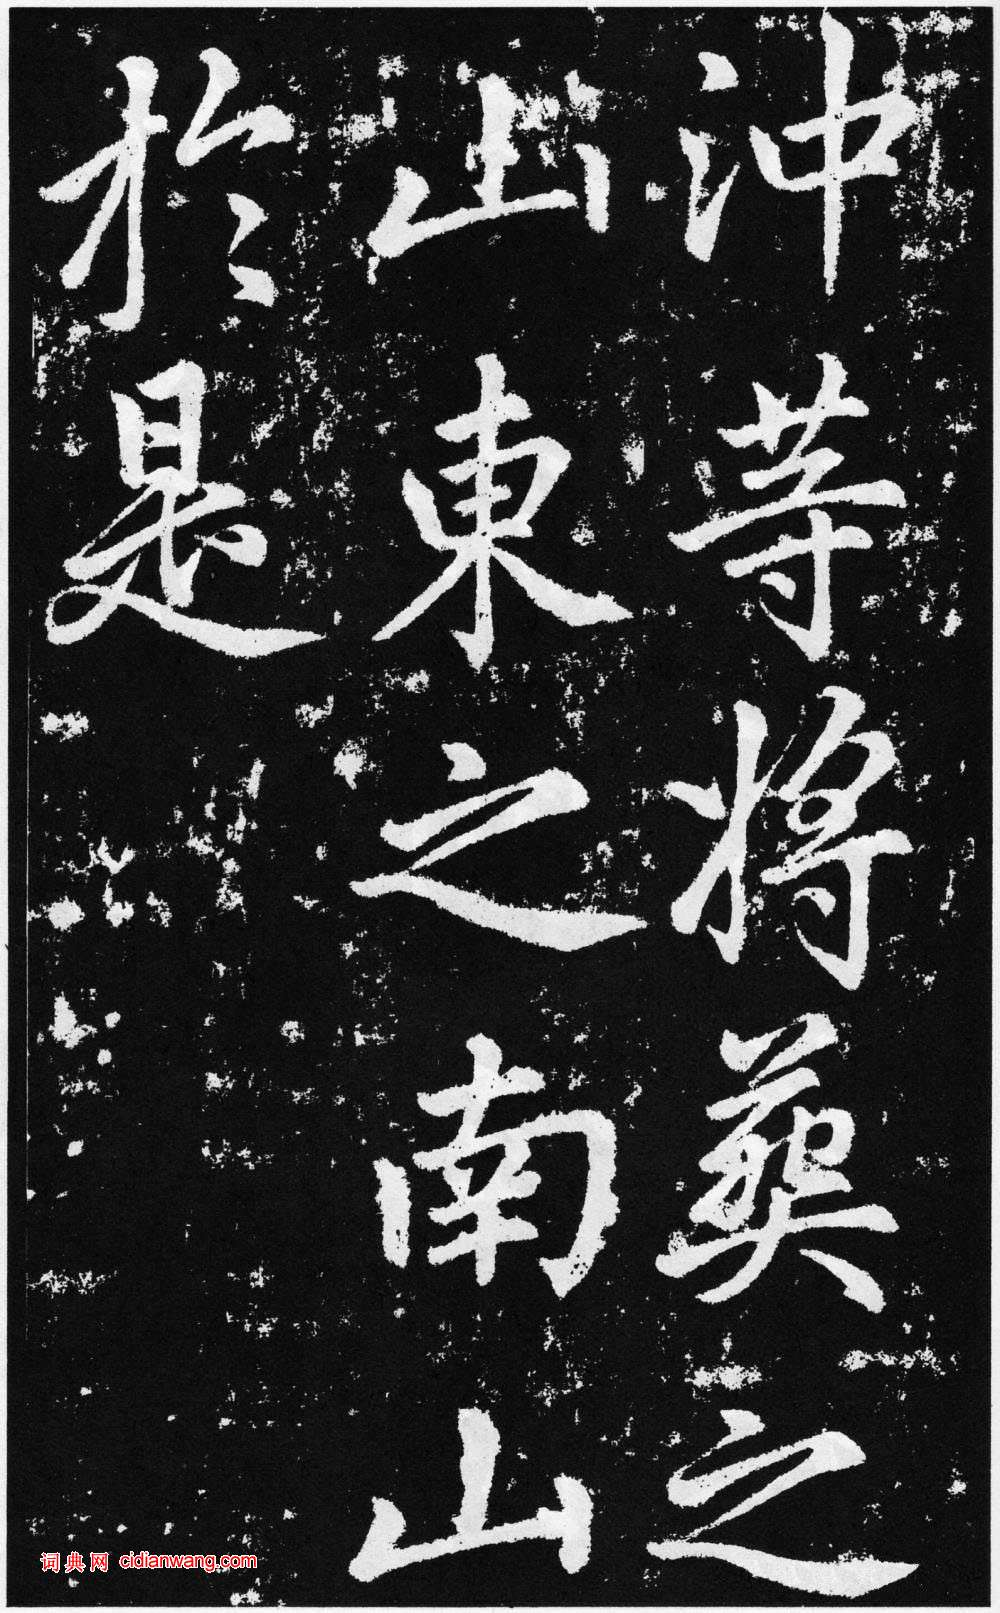 沖等將葬之
山東之南山
於是
词典网 cidianwang.com